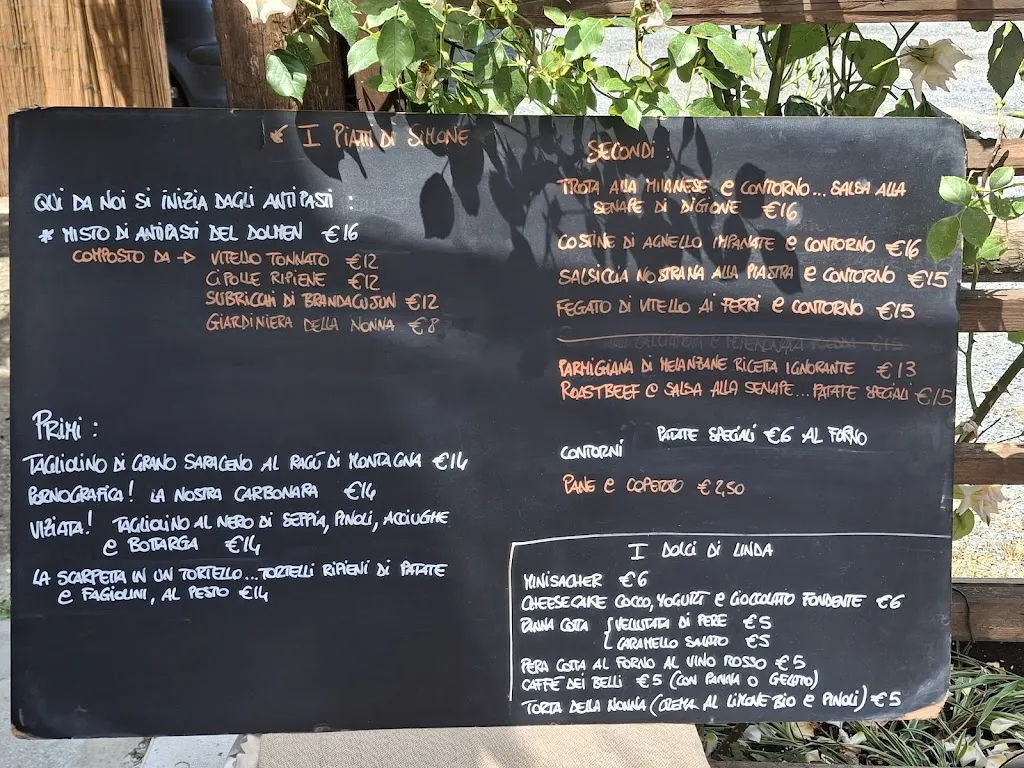 I PIATTI DI SIMONE
QUI DA NOI SI INIZIA DAGLI ANTIPASTI :
* MISTO DI ANTIPASTI DEL DOLMEN €16
COMPOSTO DA → VITELLO TONNATO €12
CIPOLLE RIPIENE €12
SUBRICCHI DI BRANDACUJUN €12
GIARDINIERA DELLA NONNA €8
PRIMI :
TAGLIOLINO DI GRANO SARACENO AL RAGÚ DI MONTAGNA €14
PORNOGRAFICA! LA NOSTRA CARBONARA €14
VIZIATA! TAGLIOLINO AL NERO DI SEPPIA, PINOLI, ACCIUGHE
E BOTTARGA €14
LA SCARPETTA IN UN TORTELLO...TORTELLI RIPIENI DI PATATE
E FAGIOLINI, AL PESTO €14
SECONDI :
TROTA ALLA MILANESE E CONTORNO... SALSA ALLA
SENAPE DI DIGIONE €16
COSTINE DI AGNELLO IMPANATE E CONTORNO €16
SALSICCIA NOSTRANA ALLA PIASTRA E CONTORNO €15
FEGATO DI VITELLO AI FERRI E CONTORNO €15
PARMIGIANA DI MELANZANE RICETTA IGNORANTE €13
ROASTBEEF E SALSA ALLA SENAPE...PATATE SPECIALI €15
PATATE SPECIALI €6 AL FORNO
CONTORNI
PANE E COPERTO €2,50
I DOLCI DI LINDA
MINISACHER €6
CHEESECAKE COCCO, YOGURT E CIOCCOLATO FONDENTE €6
PANNA COTTA { VELLUTATA DI PERE €5
CARAMELLO SALATO €5
PERA COTTA AL FORNO AL VINO ROSSO €5
CAFFE DEI BELLI €5 (CON PANNA O GELATO)
TORTA DELLA NONNA (CREMA AL LIMONE BIO E PINOLI) €5